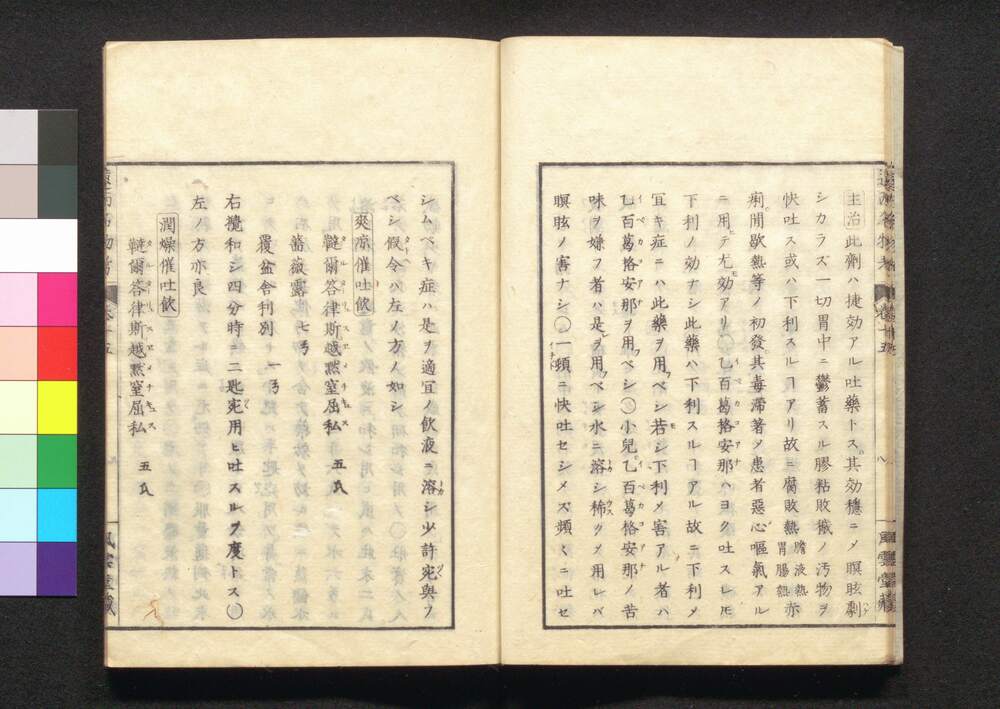 主治此劑ハ捷効アル吐藥トス其効穩ニメ瞑眩劇
シカラズ一切胃中ニ鬱蓄スル膠粘敗穢ノ汚物ヲ
快吐ス或ハ下利スルヿアリ故ニ腐敗熱 膽液熱 胃腸熱 亦
痢間歇熱等ノ初發其毒滯著メ患者惡心嘔氣アル
ニ用テ尤効アリ〇乙百葛格安那ハヨク吐スレ𪜈
下利ノ効ナシ此藥ハ下利スルヿアル故ニ下利メ
宜キ症ニハ此藥ヲ用ベシ若シ下利メ害アル者ハ
乙百葛格安那ヲ用フベシ〇小兒乙百葛格安那ノ苦
味ヲ嫌フ者ハ是レヲ用フベシ水ニ溶シ稀クメ用レバ
瞑眩ノ害ナシ〇一頓ニ快吐セシメズ頻々ニ吐セ
シムベキ症ハ是ヲ適宜ノ飲液ニ溶シ少許宛與フ
ベシ假令ハ左ノ方ノ如シ
爽凉催吐飲
韃爾荅律斯越黙窒屈私 五氏
薔薇露 七弓
覆盆舎利別 一弓
右攪和シ四分時ニ二匙宛用ヒ吐スルヲ度トス〇
左ノ方亦良
潤燥催吐飲
韃爾荅律斯越黙窒屈私 五氏
卷十五
八
風雲堂藏